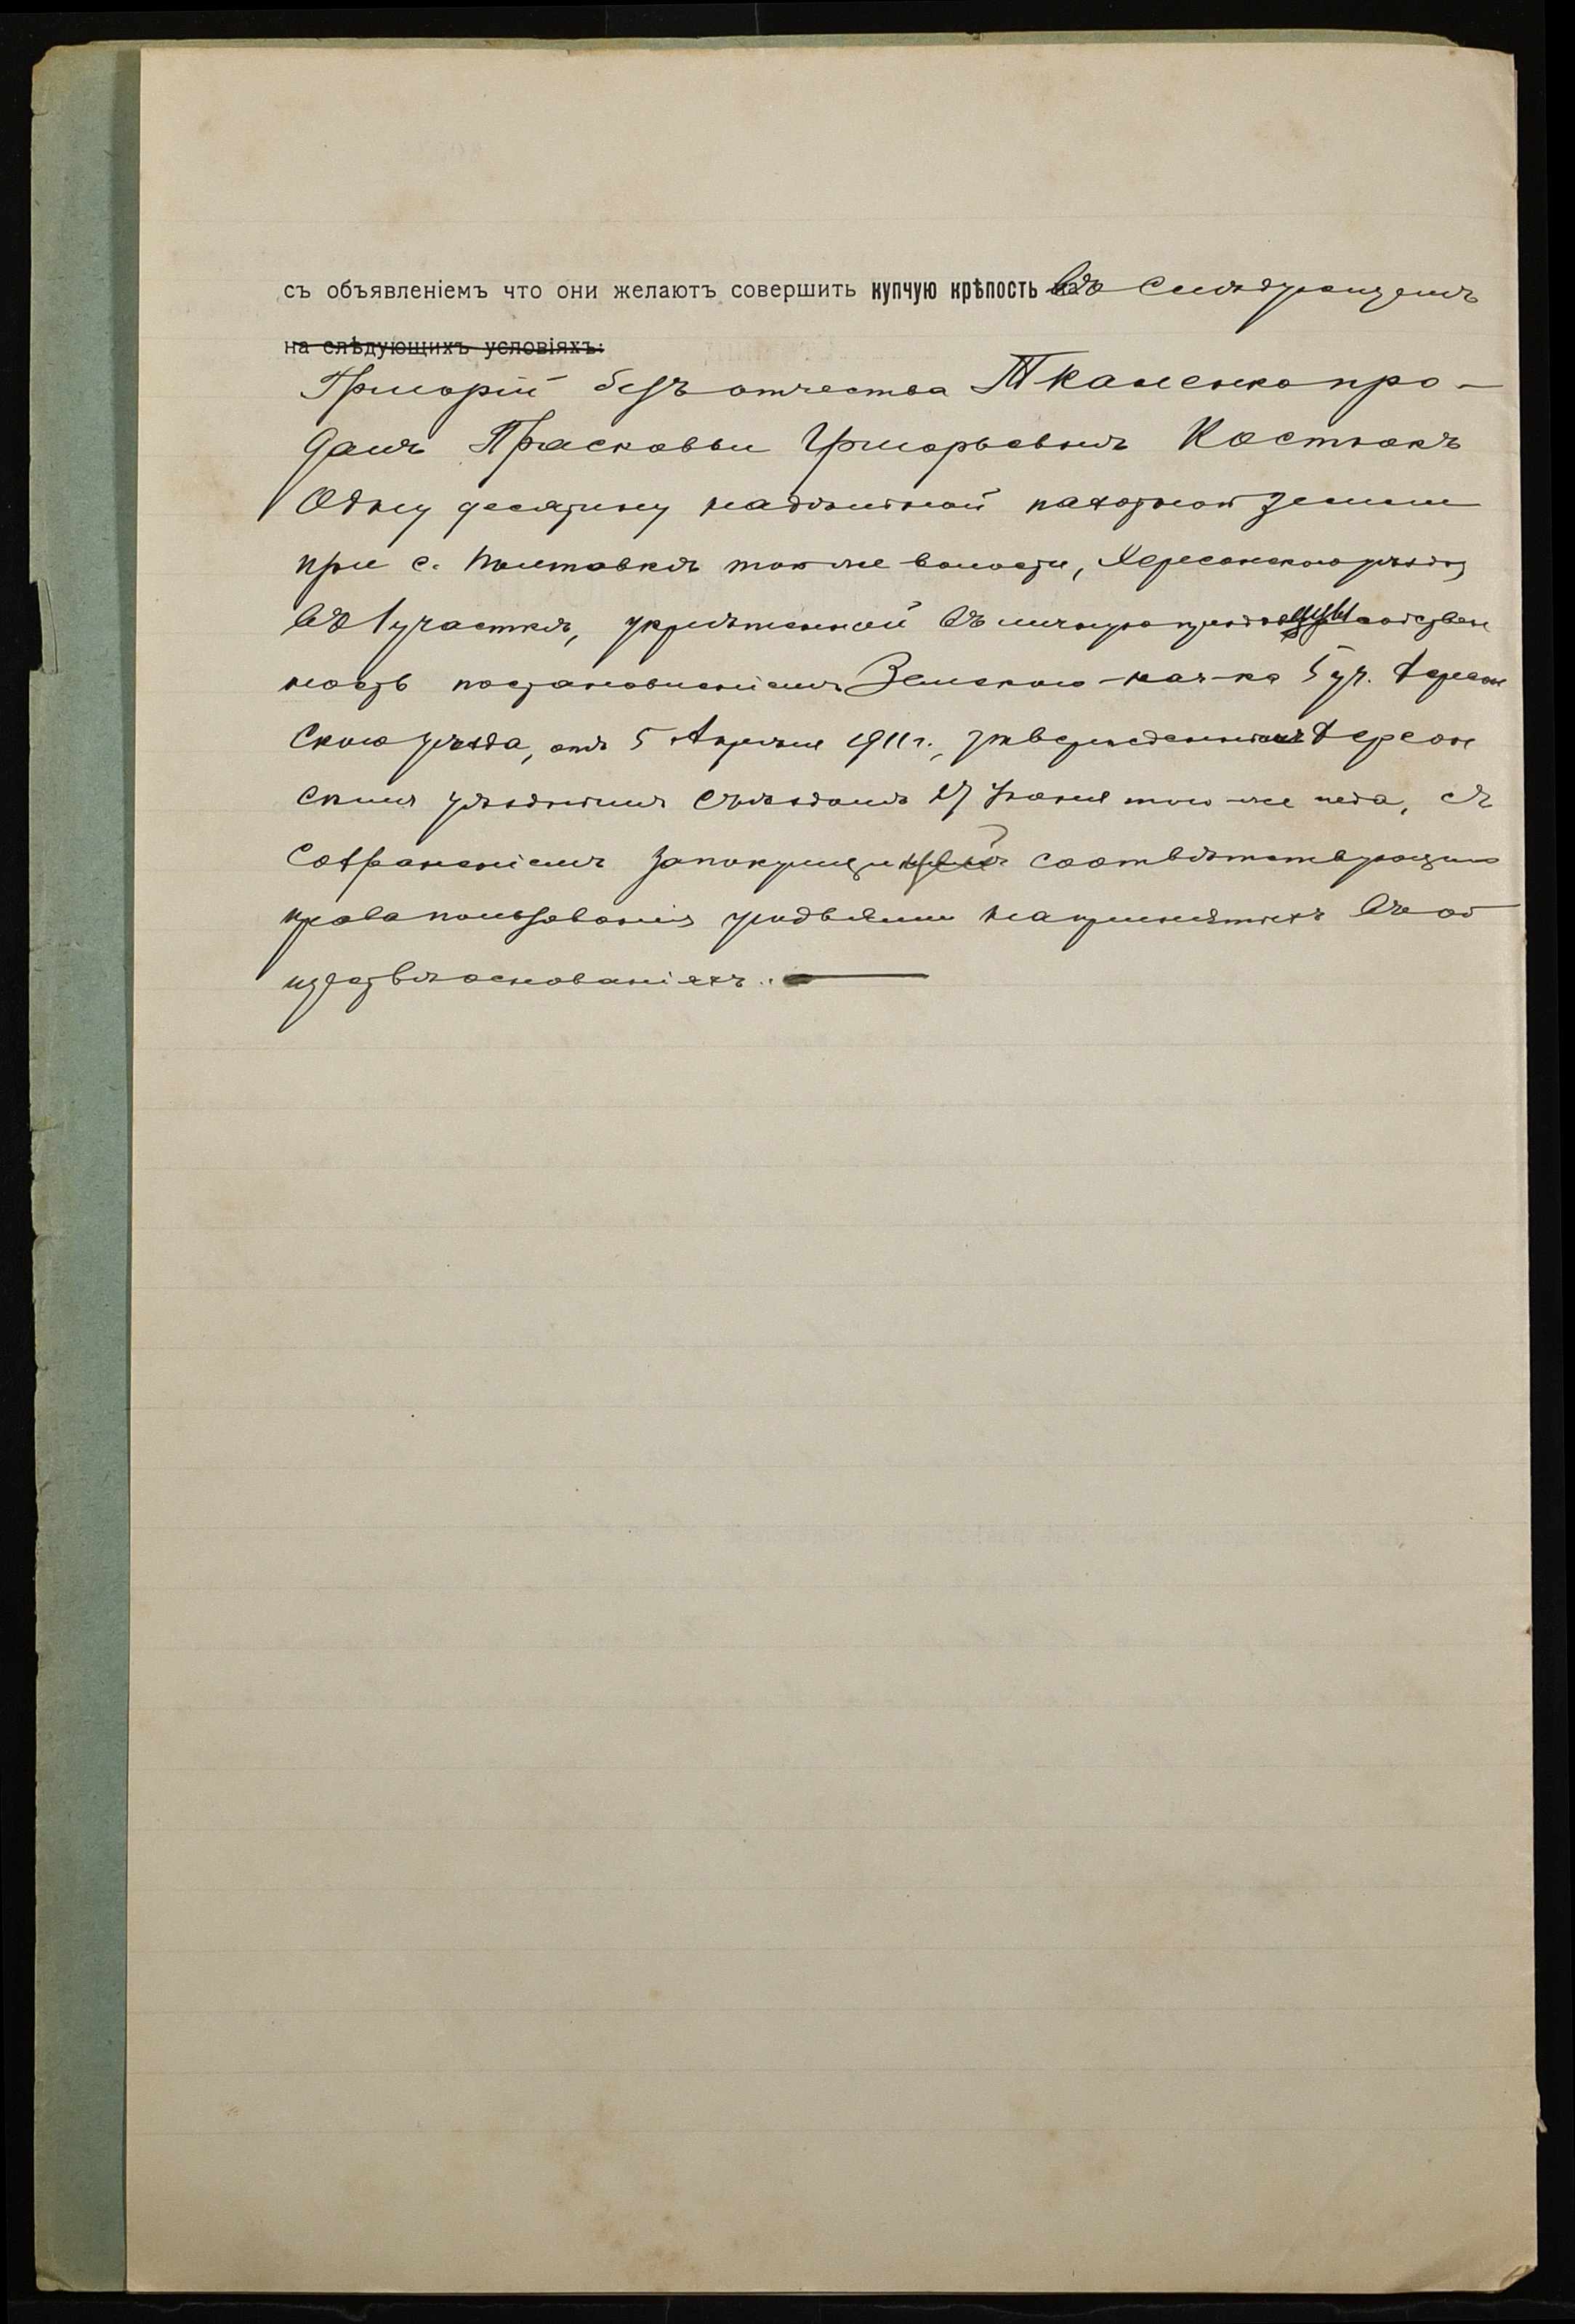 съ объявленіемъ что они желаютъ совершить купчую крѣпость въ слѣдующемъ
на слѣдующихъ условіяхъ:
Григорій безъ отчества Ткаченко про-
далъ Прасковьи Григорьевнѣ Костюкъ
Одну десятину надѣльной пахотной земли
при с. Полтавкѣ той же волости, Херсонскаго уѣзда,
въ 1 участкѣ, укрѣпленной въ личную собствен
ность постановленіемъ Земскаго нач-ка 5 уч. Херсон
скаго уѣзда, отъ 5 Апрѣля 1911 г., утвержденнымъ Херсон
скимъ уѣзднымъ Съѣздомъ 27 Іюня того же года, съ
сохраненіемъ за покупщицей соотвѣтствующаго
права пользованія угодьями на принятыхъ въ об
ществѣ основаніяхъ.